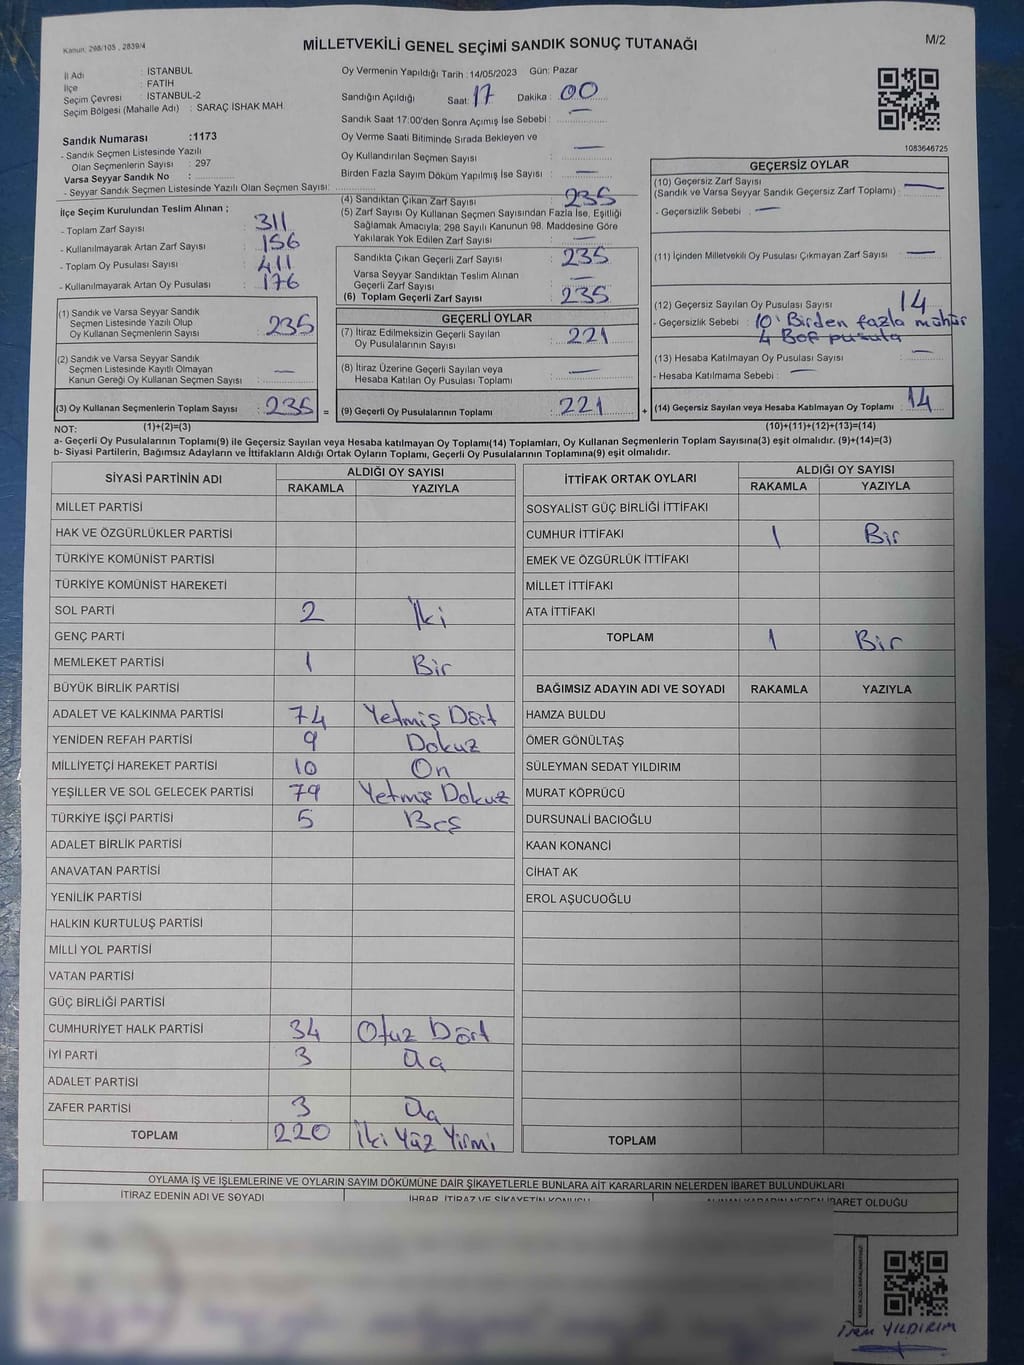 Kanun, 298/105 , 2839/4
MİLLETVEKİLİ GENEL SEÇİMİ SANDIK SONUÇ TUTANAĞI
M/2
İl Adı : İSTANBUL
İlçe : FATİH
Seçim Çevresi : İSTANBUL-2
Seçim Bölgesi (Mahalle Adı) : SARAÇ İSHAK MAH.
Sandık Numarası :1173
- Sandık Seçmen Listesinde Yazılı
Olan Seçmenlerin Sayısı : 297
Varsa Seyyar Sandık No :
- Seyyar Sandık Seçmen Listesinde Yazılı Olan Seçmen Sayısı:
Oy Vermenin Yapıldığı Tarih :14/05/2023 Gün: Pazar
Sandığın Açıldığı Saat: 17 Dakika : 00
Sandık Saat 17:00'den Sonra Açımış İse Sebebi : —
Oy Verme Saati Bitiminde Sırada Bekleyen ve
Oy Kullandırılan Seçmen Sayısı : —
Birden Fazla Sayım Döküm Yapılmış İse Sayısı : —
1083646725
İlçe Seçim Kurulundan Teslim Alınan ;
- Toplam Zarf Sayısı : 311
- Kullanılmayarak Artan Zarf Sayısı : 156
- Toplam Oy Pusulası Sayısı : 411
- Kullanılmayarak Artan Oy Pusulası : 176
(1) Sandık ve Varsa Seyyar Sandık
Seçmen Listesinde Yazılı Olup
Oy Kullanan Seçmenlerin Sayısı : 235
(2) Sandık ve Varsa Seyyar Sandık
Seçmen Listesinde Kayıtlı Olmayan
Kanun Gereği Oy Kullanan Seçmen Sayısı : —
(3) Oy Kullanan Seçmenlerin Toplam Sayısı : 235 =
(4) Sandıktan Çıkan Zarf Sayısı : 235
(5) Zarf Sayısı Oy Kullanan Seçmen Sayısından Fazla İse, Eşitliği
Sağlamak Amacıyla; 298 Sayılı Kanunun 98. Maddesine Göre
Yakılarak Yok Edilen Zarf Sayısı : —
Sandıkta Çıkan Geçerli Zarf Sayısı : 235
Varsa Seyyar Sandıktan Teslim Alınan
Geçerli Zarf Sayısı : —
(6) Toplam Geçerli Zarf Sayısı : 235
GEÇERLİ OYLAR
(7) İtiraz Edilmeksizin Geçerli Sayılan
Oy Pusulalarının Sayısı : 221
(8) İtiraz Üzerine Geçerli Sayılan veya
Hesaba Katılan Oy Pusulası Toplamı : —
(9) Geçerli Oy Pusulalarının Toplamı : 221 +
GEÇERSİZ OYLAR
(10) Geçersiz Zarf Sayısı
(Sandık ve Varsa Seyyar Sandık Geçersiz Zarf Toplamı) : —
- Geçersizlik Sebebi : —
(11) İçinden Milletvekili Oy Pusulası Çıkmayan Zarf Sayısı : —
(12) Geçersiz Sayılan Oy Pusulası Sayısı : 14
- Geçersizlik Sebebi : 10 Birden fazla mühür
4 Boş pusula
(13) Hesaba Katılmayan Oy Pusulası Sayısı : —
- Hesaba Katılmama Sebebi : —
(14) Geçersiz Sayılan veya Hesaba Katılmayan Oy Toplamı : 14
NOT: (1)+(2)=(3) (10)+(11)+(12)+(13)=(14)
a- Geçerli Oy Pusulalarının Toplamı(9) ile Geçersiz Sayılan veya Hesaba katılmayan Oy Toplamı(14) Toplamları, Oy Kullanan Seçmenlerin Toplam Sayısına(3) eşit olmalıdır. (9)+(14)=(3)
b- Siyasi Partilerin, Bağımsız Adayların ve İttifakların Aldığı Ortak Oyların Toplamı, Geçerli Oy Pusulalarının Toplamına(9) eşit olmalıdır.
SİYASİ PARTİNİN ADI ALDIĞI OY SAYISI
RAKAMLA YAZIYLA
MİLLET PARTİSİ
HAK VE ÖZGÜRLÜKLER PARTİSİ
TÜRKİYE KOMÜNİST PARTİSİ
TÜRKİYE KOMÜNİST HAREKETİ
SOL PARTİ 2 İki
GENÇ PARTİ
MEMLEKET PARTİSİ 1 Bir
BÜYÜK BİRLİK PARTİSİ
ADALET VE KALKINMA PARTİSİ 74 Yetmiş Dört
YENİDEN REFAH PARTİSİ 9 Dokuz
MİLLİYETÇİ HAREKET PARTİSİ 10 On
YEŞİLLER VE SOL GELECEK PARTİSİ 79 Yetmiş Dokuz
TÜRKİYE İŞÇİ PARTİSİ 5 Beş
ADALET BİRLİK PARTİSİ
ANAVATAN PARTİSİ
YENİLİK PARTİSİ
HALKIN KURTULUŞ PARTİSİ
MİLLİ YOL PARTİSİ
VATAN PARTİSİ
GÜÇ BİRLİĞİ PARTİSİ
CUMHURİYET HALK PARTİSİ 34 Otuz Dört
İYİ PARTİ 3 Üç
ADALET PARTİSİ
ZAFER PARTİSİ 3 Üç
TOPLAM 220 İki Yüz Yirmi
İTTİFAK ORTAK OYLARI ALDIĞI OY SAYISI
RAKAMLA YAZIYLA
SOSYALİST GÜÇ BİRLİĞİ İTTİFAKI
CUMHUR İTTİFAKI 1 Bir
EMEK VE ÖZGÜRLÜK İTTİFAKI
MİLLET İTTİFAKI
ATA İTTİFAKI
TOPLAM 1 Bir
BAĞIMSIZ ADAYIN ADI VE SOYADI RAKAMLA YAZIYLA
HAMZA BULDU
ÖMER GÖNÜLTAŞ
SÜLEYMAN SEDAT YILDIRIM
MURAT KÖPRÜCÜ
DURSUNALİ BACIOĞLU
KAAN KONANCİ
CİHAT AK
EROL AŞUCUOĞLU
TOPLAM
OYLAMA İŞ VE İŞLEMLERİNE VE OYLARIN SAYIM DÖKÜMÜNE DAİR ŞİKAYETLERLE BUNLARA AİT KARARLARIN NELERDEN İBARET BULUNDUKLARI
İTİRAZ EDENİN ADI VE SOYADI İHBAR, İTİRAZ VE ŞİKAYETİN KONUSU ALINAN KARARIN NEDEN İBARET OLDUĞU
YILDIRIM